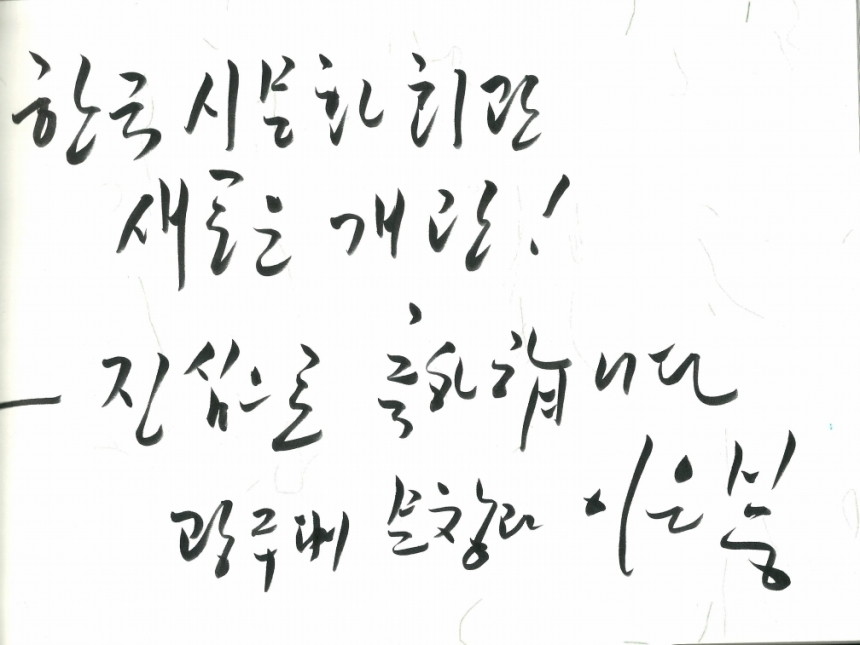 한국 시문학회관
새로운 개관!
진심으로 축하합니다
광주대 문창과 이은봉